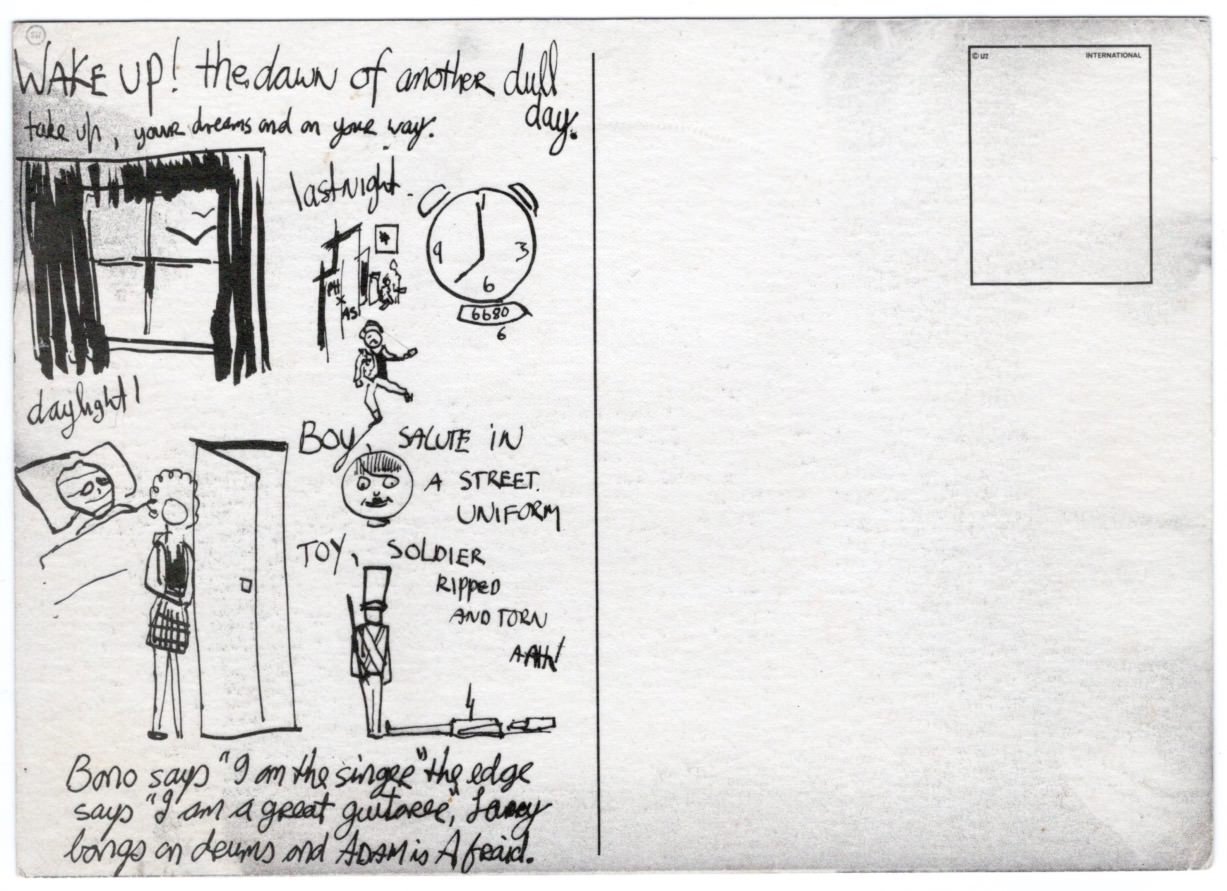 WAKE UP! the dawn of another dull
day.
take up, your dreams and on your way.
© U2
INTERNATIONAL
last night.
9
3
6
6680
6
daylight!
BOY, SALUTE IN
A STREET.
UNIFORM
TOY, SOLDIER
RIPPED
AND TORN
AAH!
Bono says "I am the singer" the edge
says "I am a great guitaree", Larry
bangs on drums and ADAM is Afraid.